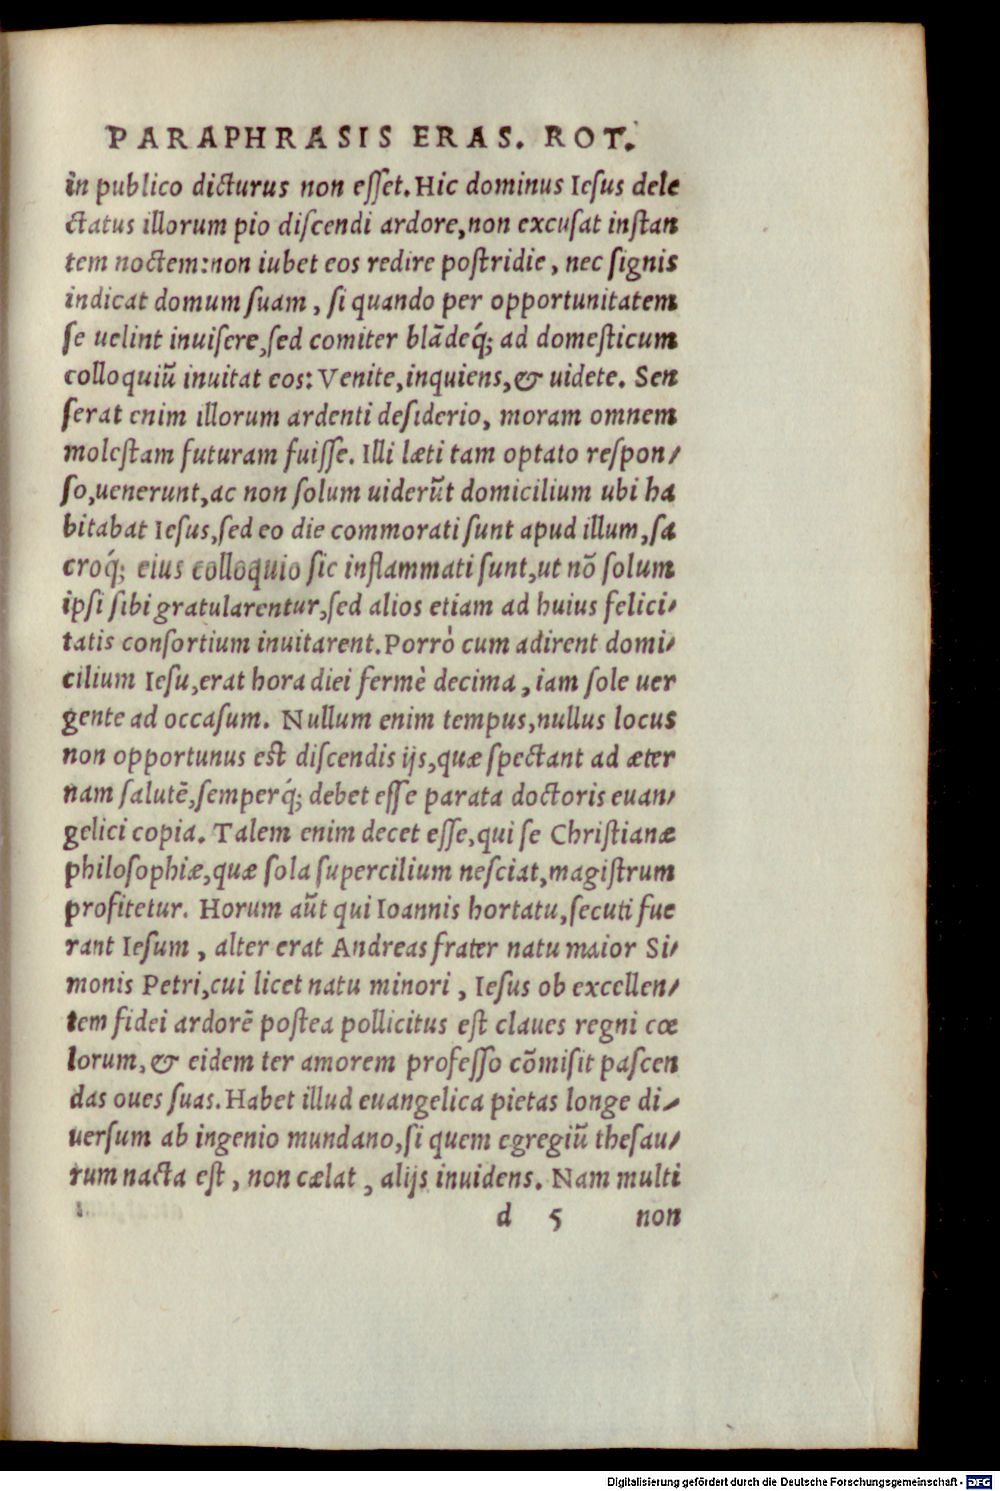 PARAPHRASIS ERAS. ROT.
in publico dicturus non eſſet. Hic dominus Ieſus dele
ctatus illorum pio diſcendi ardore, non excuſat inſtan
tem noctem: non iubet eos redire poſtridie, nec ſignis
indicat domum ſuam, ſi quando per opportunitatem
ſe uelint inuiſere, ſed comiter blādeq́; ad domeſticum
colloquiū inuitat eos: Venite, inquiens, & uidete. Sen
ſerat enim illorum ardenti deſiderio, moram omnem
moleſtam futuram fuiſſe. Illi læti tam optato reſpon/
ſo, uenerunt, ac non ſolum uiderūt domicilium ubi ha
bitabat Ieſus, ſed eo die commorati ſunt apud illum, ſa
croq́; eius colloquio ſic inflammati ſunt, ut nō ſolum
ipſi ſibi gratularentur, ſed alios etiam ad huius felici/
tatis conſortium inuitarent. Porrò cum adirent domi/
cilium Ieſu, erat hora diei fermè decima, iam ſole uer
gente ad occaſum. Nullum enim tempus, nullus locus
non opportunus eſt diſcendis ijs, quæ ſpectant ad æter
nam ſalutē, ſemperq́; debet eſſe parata doctoris euan/
gelici copia. Talem enim decet eſſe, qui ſe Chriſtianæ
philoſophiæ, quæ ſola ſupercilium neſciat, magiſtrum
profitetur. Horum aūt qui Ioannis hortatu, ſecuti fue
rant Ieſum, alter erat Andreas frater natu maior Si/
monis Petri, cui licet natu minori, Ieſus ob excellen/
tem fidei ardorē poſtea pollicitus eſt claues regni cœ
lorum, & eidem ter amorem profeſſo cōmiſit paſcen
das oues ſuas. Habet illud euangelica pietas longe di/
uerſum ab ingenio mundano, ſi quem egregiū theſau/
rum nacta eſt, non cælat, alijs inuidens. Nam multi
d 5 non
Digitalisierung gefördert durch die Deutsche Forschungsgemeinschaft - DFG